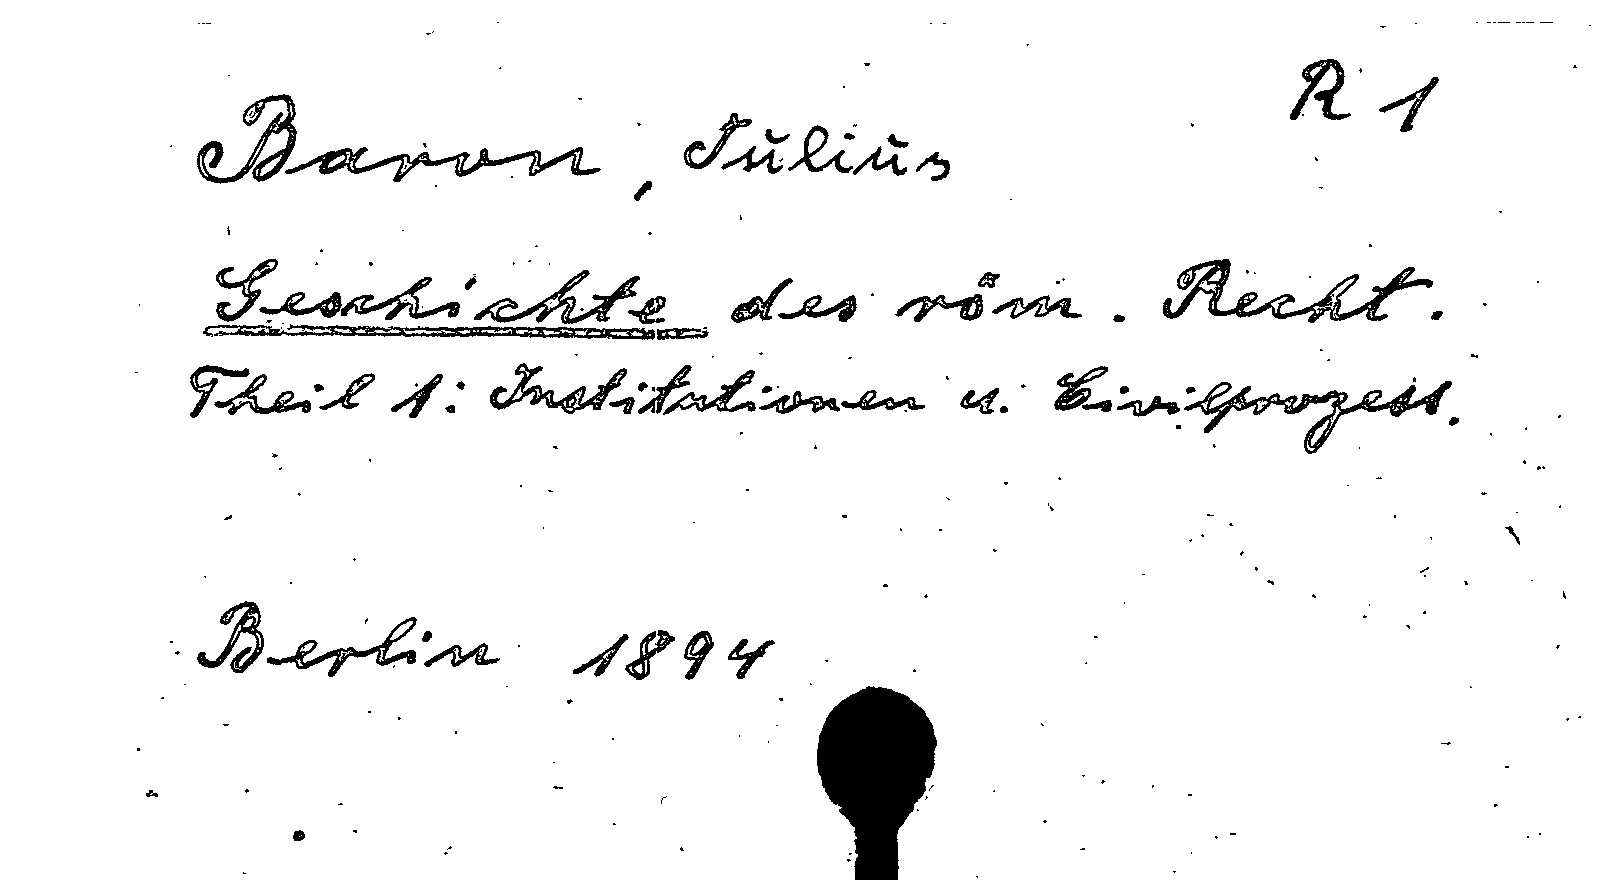 R 1
Baron, Julius
Geschichte des röm. Recht.
Theil 1: Institutionen u. Civilprozess.
Berlin 1894